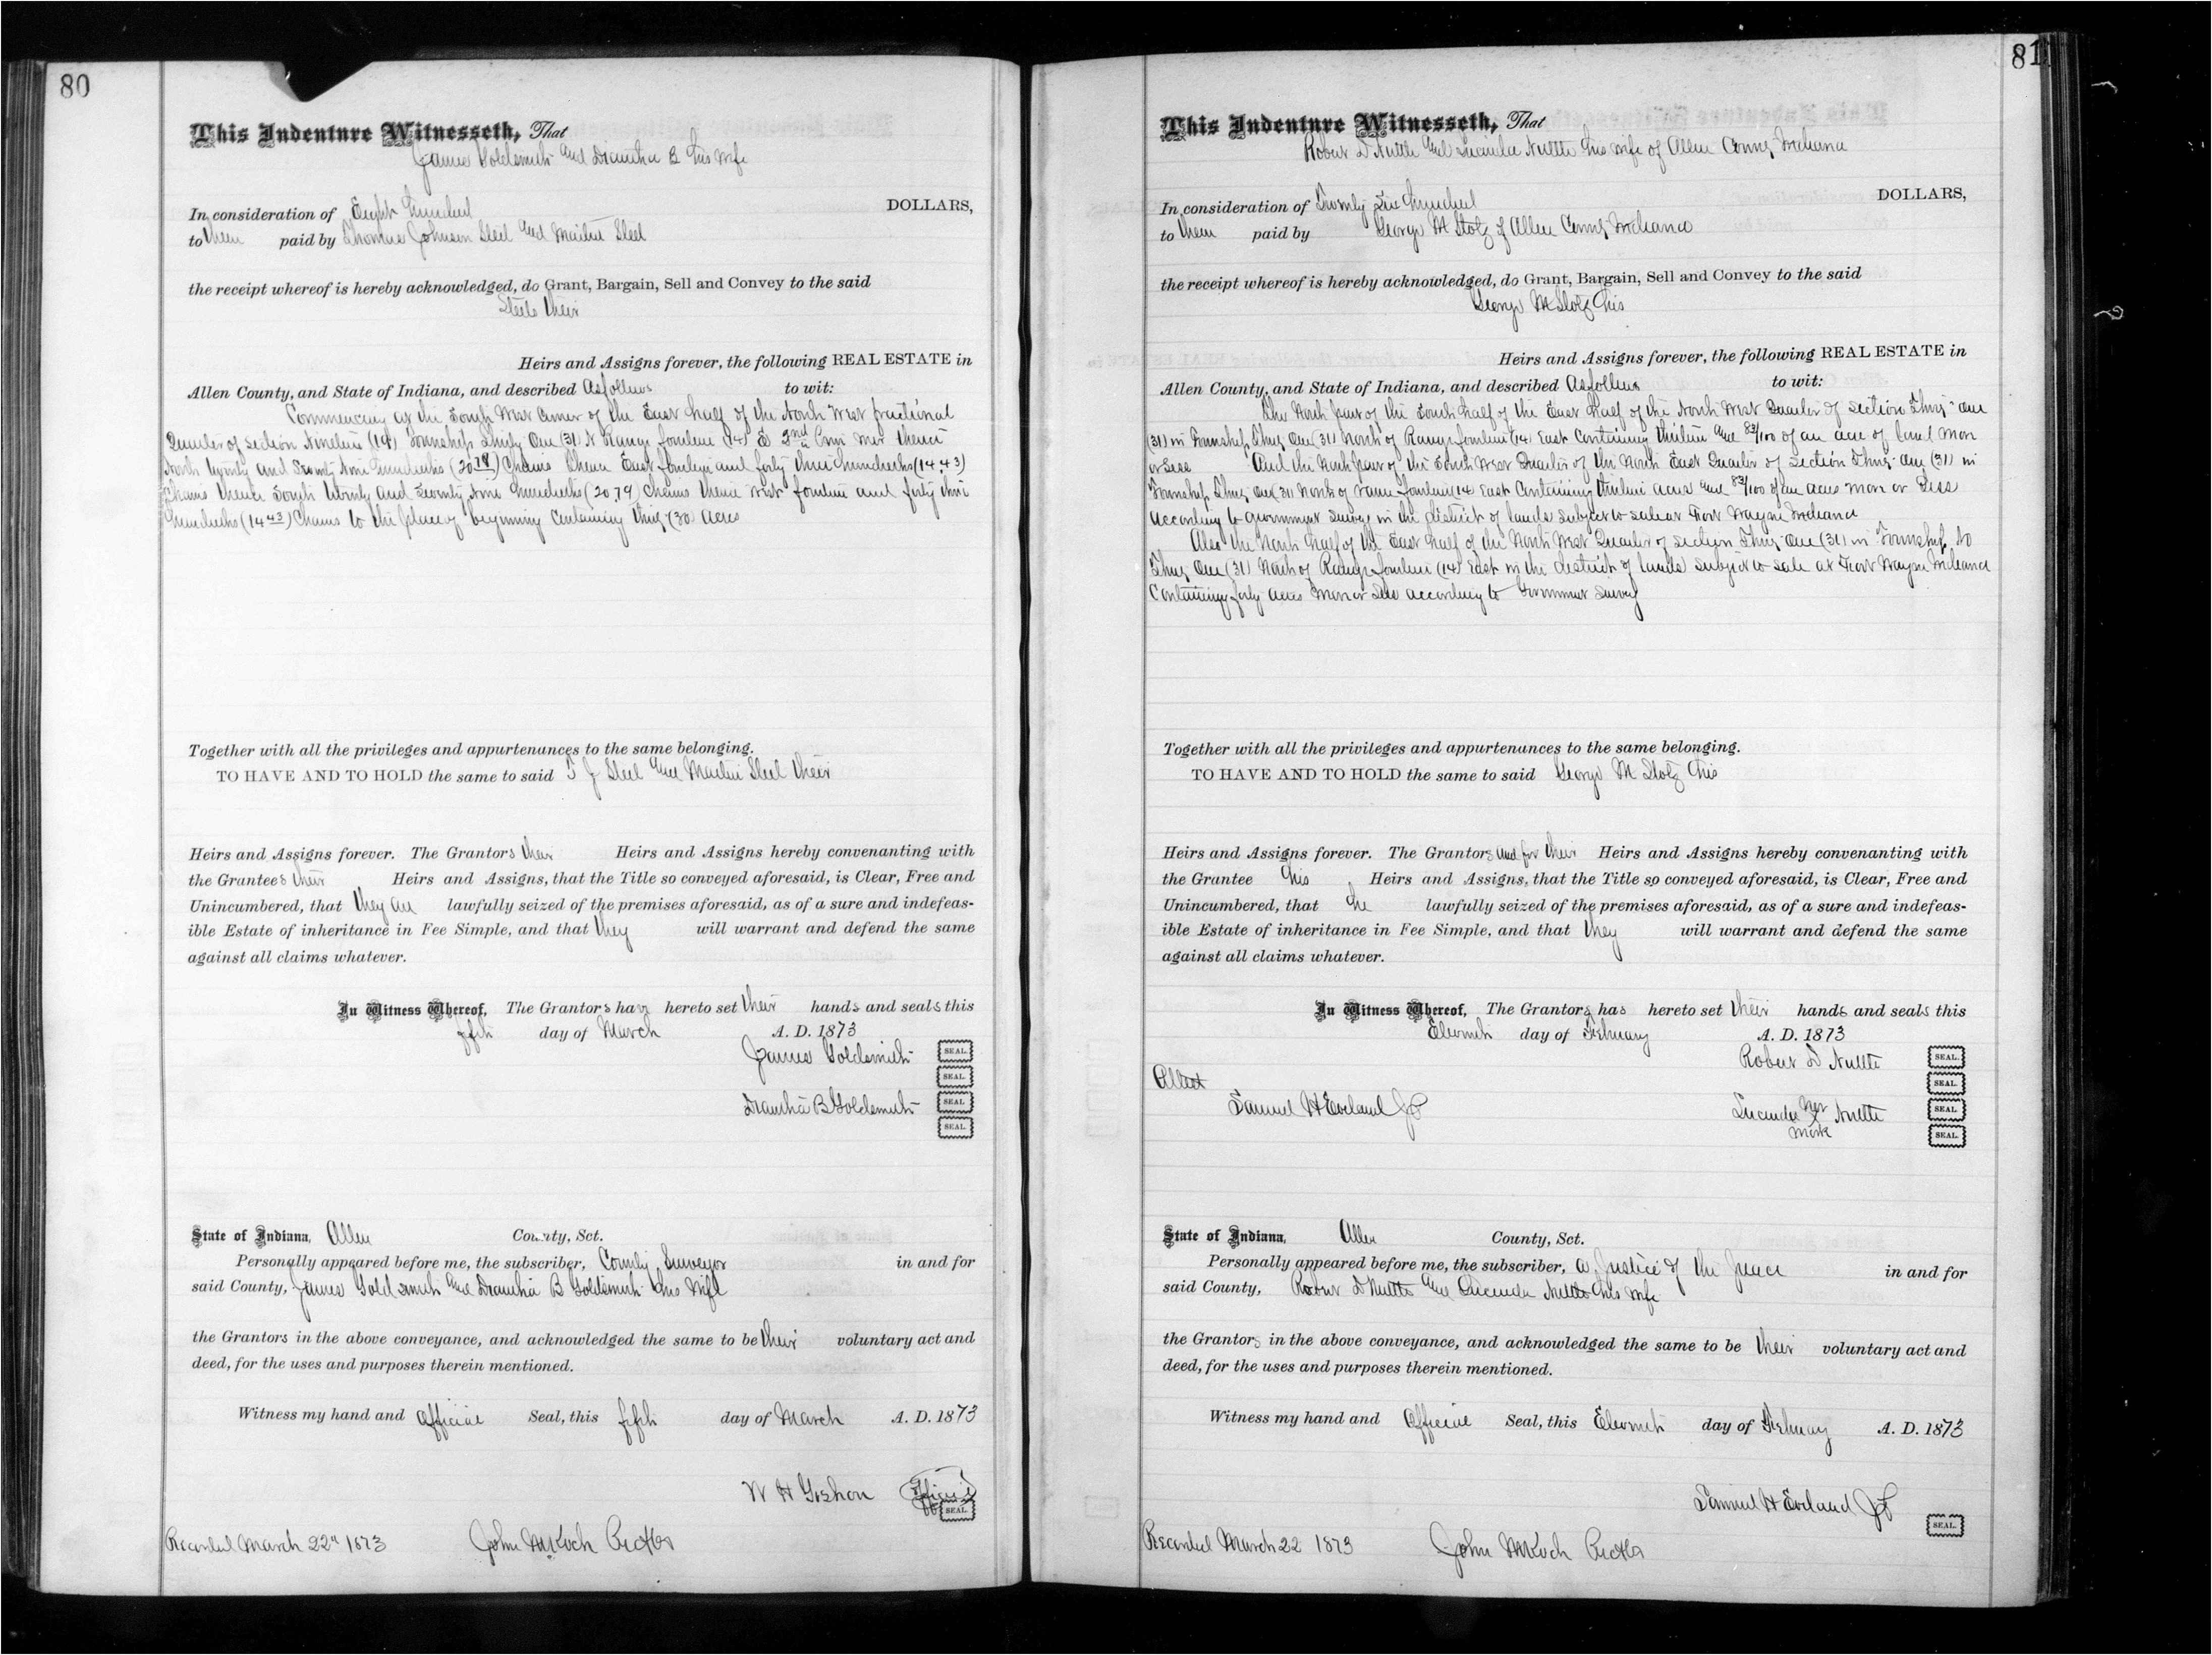 80
This Indenture Witnesseth, That
James Goldsmith and Diantha B his wife
In consideration of Eight Hundred DOLLARS,
to them paid by Thomas Johnson Steel and Steel
the receipt whereof is hereby acknowledged, do Grant, Bargain, Sell and Convey to the said
Steels their
Heirs and Assigns forever, the following REAL ESTATE in
Allen County, and State of Indiana, and described As follows to wit:
Commencing at the South West Corner of the East half of the North West fractional
Quarter of Section Nineteen (19) Township Thirty One (31) N Range fourteen (14) E 2nd Prin Mer thence
North twenty and Seventy Nine Hundredths (20 79) Chains thence East fourteen and forty three hundredths (14 43)
Chains thence South twenty and Seventy Nine Hundredths (20,79) Chains thence West fourteen and forty three
Hundredths (14 43) Chains to the place of beginning Containing thirty (30) acres
Together with all the privileges and appurtenances to the same belonging.
TO HAVE AND TO HOLD the same to said T J Steel and Steel their
Heirs and Assigns forever. The Grantors their Heirs and Assigns hereby convenanting with
the Grantees their Heirs and Assigns, that the Title so conveyed aforesaid, is Clear, Free and
Unincumbered, that they are lawfully seized of the premises aforesaid, as of a sure and indefeas-
ible Estate of inheritance in Fee Simple, and that they will warrant and defend the same
against all claims whatever.
In Witness Whereof, The Grantors have hereto set their hands and seals this
fifth day of March A. D. 1873
James Goldsmith SEAL.
SEAL.
Diantha B Goldsmith SEAL.
SEAL.
State of Indiana, Allen County, Sct.
Personally appeared before me, the subscriber, County Surveyor in and for
said County, James Goldsmith and Diantha B Goldsmith his wife
the Grantors in the above conveyance, and acknowledged the same to be their voluntary act and
deed, for the uses and purposes therein mentioned.
Witness my hand and official Seal, this fifth day of March A. D. 1873
W H Goshorn Official
SEAL.
Recorded March 22" 1873 John M Koch Rec
81
This Indenture Witnesseth, That
Robert D Nuttle and Lucinda Nuttle his wife of Allen County Indiana
In consideration of Twenty Six Hundred DOLLARS,
to them paid by George M Stolz of Allen County Indiana
the receipt whereof is hereby acknowledged, do Grant, Bargain, Sell and Convey to the said
George M Stolz his
Heirs and Assigns forever, the following REAL ESTATE in
Allen County, and State of Indiana, and described as follows to wit:
The North part of the South half of the East half of the North West Quarter of Section Thirty One
(31) in Township Thirty One (31) North of Range fourteen (14) East Containing thirteen and 83/100 of an acre of land more
or less And the North part of the South West Quarter of the North East Quarter of Section Thirty One (31) in
Township Thirty One (31 North of range fourteen (14) East Containing thirteen acres and 83/100 of an acres more or less
According to government survey in the district of lands subject to sale at Fort Wayne Indiana
Also the North half of the East half of the North West Quarter of section Thirty One (31) in Township No
Thirty One (31) North of Range fourteen (14) East in the district of lands subject to sale at Fort Wayne Indiana
Containing forty acres more or less according to Government Survey
Together with all the privileges and appurtenances to the same belonging.
TO HAVE AND TO HOLD the same to said George M Stolz his
Heirs and Assigns forever. The Grantors and for their Heirs and Assigns hereby convenanting with
the Grantee his Heirs and Assigns, that the Title so conveyed aforesaid, is Clear, Free and
Unincumbered, that he lawfully seized of the premises aforesaid, as of a sure and indefeas-
ible Estate of inheritance in Fee Simple, and that they will warrant and defend the same
against all claims whatever.
In Witness Whereof, The Grantors has hereto set their hands and seals this
Eleventh day of February A. D. 1873
Robert D Nuttle SEAL.
Attest SEAL.
Samuel H Eveland JP Lucinda her X mark Nuttle SEAL.
SEAL.
State of Indiana, Allen County, Sct.
Personally appeared before me, the subscriber, a Justice of the Peace in and for
said County, Robert D Nuttle and Lucinda Nuttle his wife
the Grantors in the above conveyance, and acknowledged the same to be their voluntary act and
deed, for the uses and purposes therein mentioned.
Witness my hand and Official Seal, this Eleventh day of February A. D. 1873
Samuel H Eveland JP
SEAL.
Recorded March 22 1873 John M Koch Rec